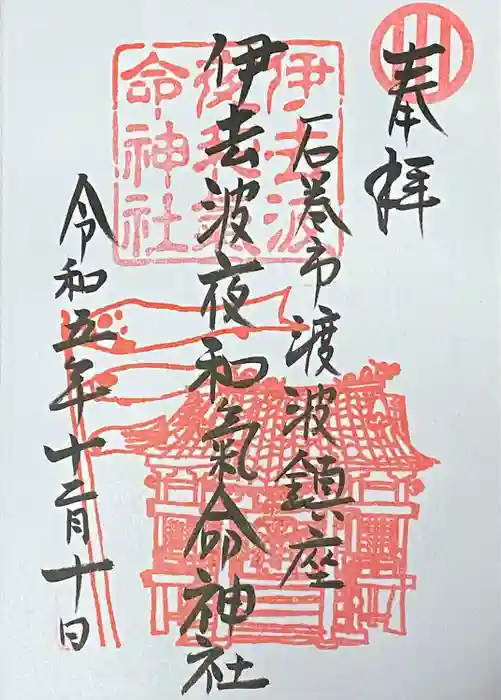 奉拝
石巻市渡波鎮座
伊去波夜和氣命神社
令和五年十二月十日
伊去波
命神社